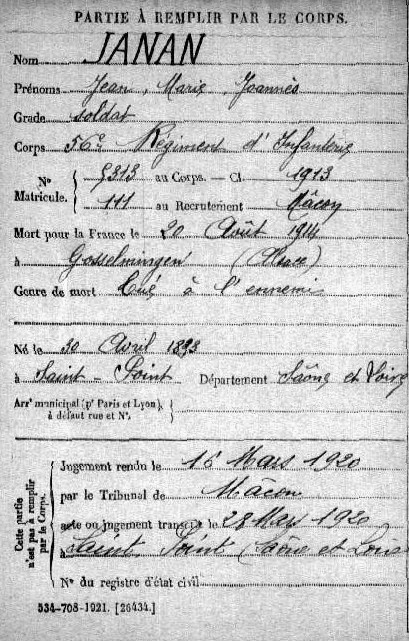 PARTIE À REMPLIR PAR LE CORPS.
Nom JANAN
Prénoms Jean, Marie, Joannès
Grade soldat
Corps 56e Régiment d'Infanterie
N° Matricule. { 5313 au Corps. — Cl. 1913
111 au Recrutement Mâcon
Mort pour la France le 20 Août 1914
à Gosselmingen (Alsace)
Genre de mort Tué à l'ennemi
Né le 30 Avril 1893
à Saint-Point Département Saône et Loire
Arrt municipal (pr Paris et Lyon), à défaut rue et N°. {
Cette partie n'est pas à remplir par le Corps.
Jugement rendu le 16 Mars 1920
par le Tribunal de Mâcon
acte ou jugement transcrit le 28 Mars 1920
à Saint Point Saône et Loire
N° du registre d'état civil
534-708-1921. [26434.]